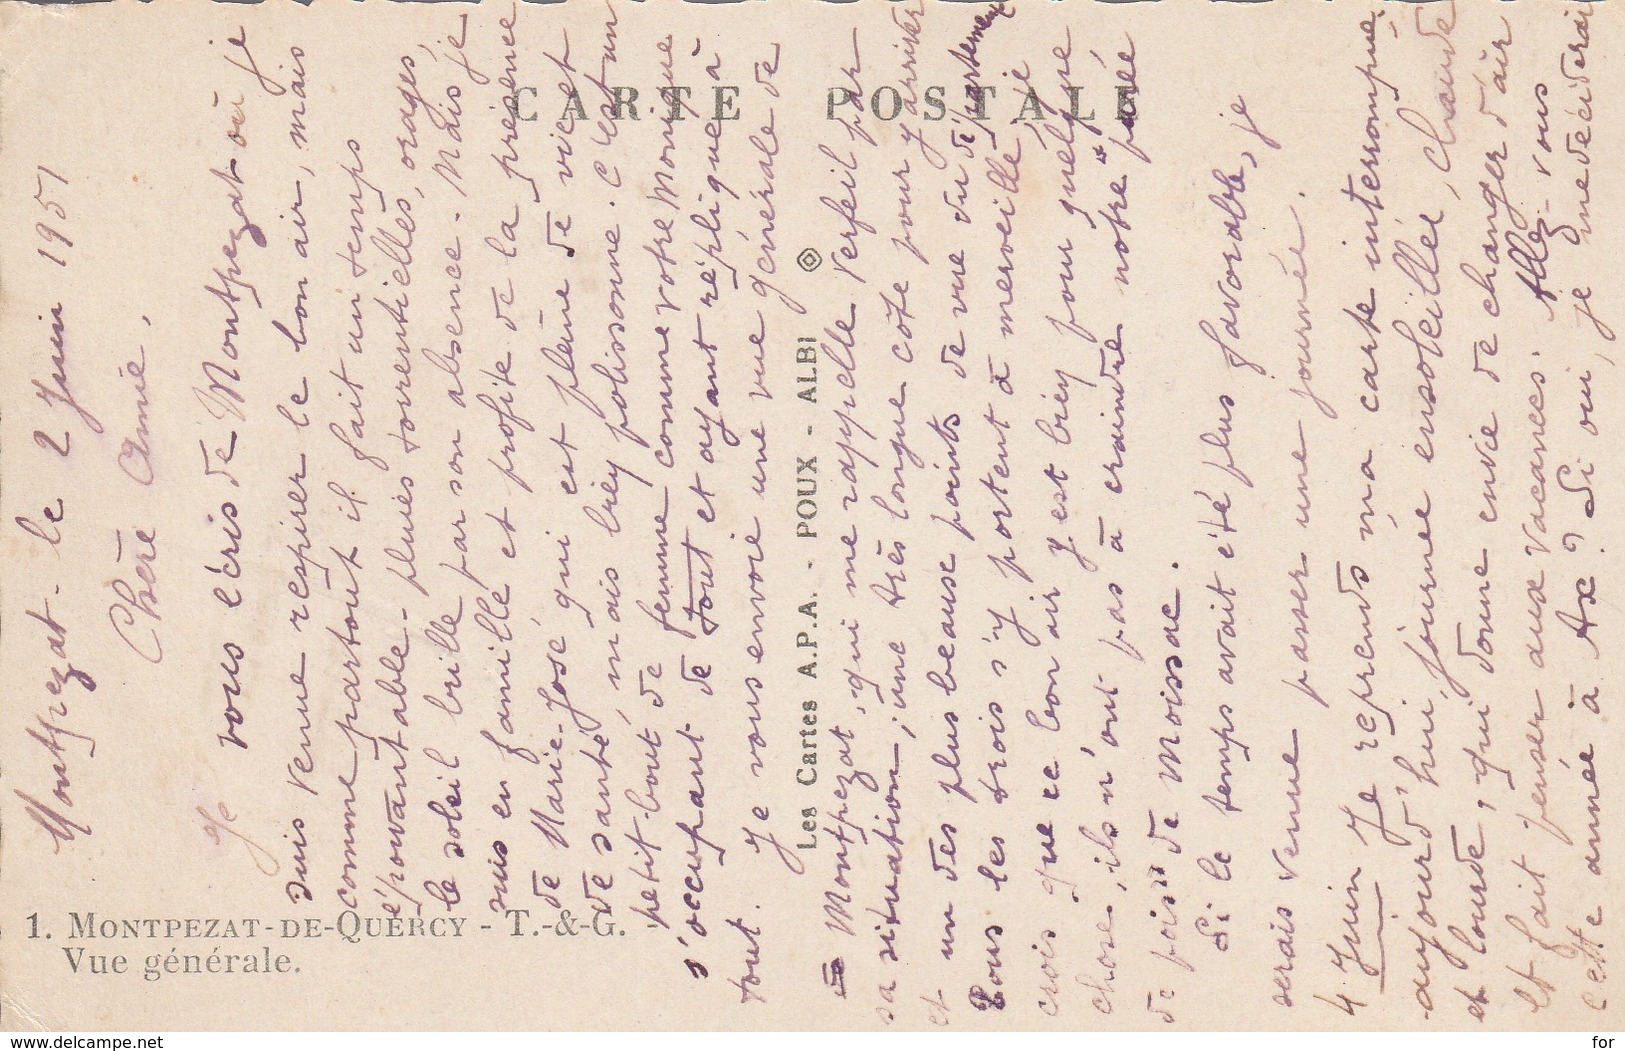 CARTE POSTALE
Montpezat. le 2 Juin 1951
Chère Amie,
Je vous écris de Montpezat où je
suis venue respirer le bon air, mais
comme partout il fait un temps
épouvantable. pluies torrentielles, orages,
le soleil brille par son absence. Mais je
suis en famille et profite de la présence
de Marie-José qui est pleine de vie et
de santé, mais bien polissonne. C'est un
petit bout de femme comme votre Monique
s'occupant de tout et ayant réplique à
tout. Je vous envoie une vue générale de
Montpezat, qui me rappelle Verfeil par
sa situation, une très longue côte pour y arriver
et un des plus beaux points de vue du département
Tous les trois s'y portent à merveille je
crois que ce bon air y est bien pour quelque
chose, ils n'ont pas à craindre notre "purée
de pois" de Moissac.
Si le temps avait été plus favorable, je
serais venue passer une journée.
4 Juin Je reprends ma carte interrompue,
aujourd'hui journée ensoleillée, chaude
et lourde, qui donne envie de changer d'air
et fait penser aux vacances. Allez-vous
cette année à Ax? Si oui, je me déciderai
Les Cartes A.P.A. - POUX - ALBI
1. MONTPEZAT-DE-QUERCY - T.-&-G.
Vue générale.
www.delcampe.net
for